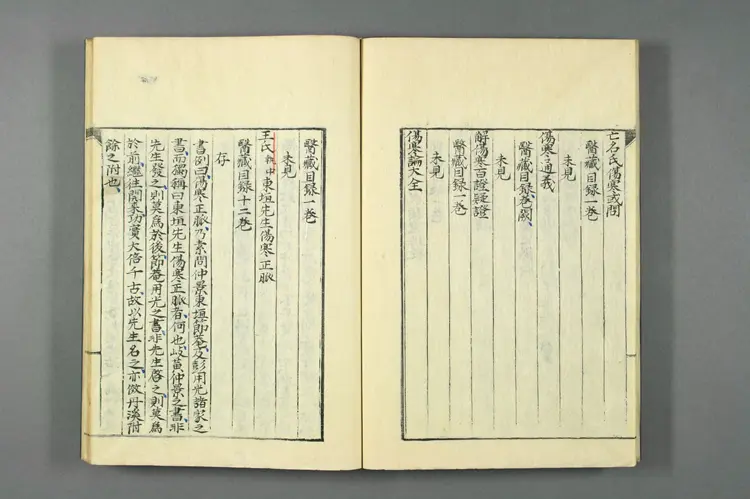 亡名氏傷寒或問
醫藏目録一卷
未見
傷寒通義
醫藏目録卷闕
未見
解傷寒百證疑證
醫藏目録一卷
未見
傷寒論大全
醫藏目録一卷
未見
王氏執中東垣先生傷寒正脈
醫藏目録十二卷
存
書例曰傷寒正脈乃素問仲景東垣節菴及彭用光諸家之
書而獨稱曰東垣先生傷寒正脈者何也岐黃仲景之書非
先生發之則莫爲於後節菴用光之書非先生啓之則莫爲
於前繼往開來功實大倍千古故以先生名之亦倣丹溪附
餘之附也